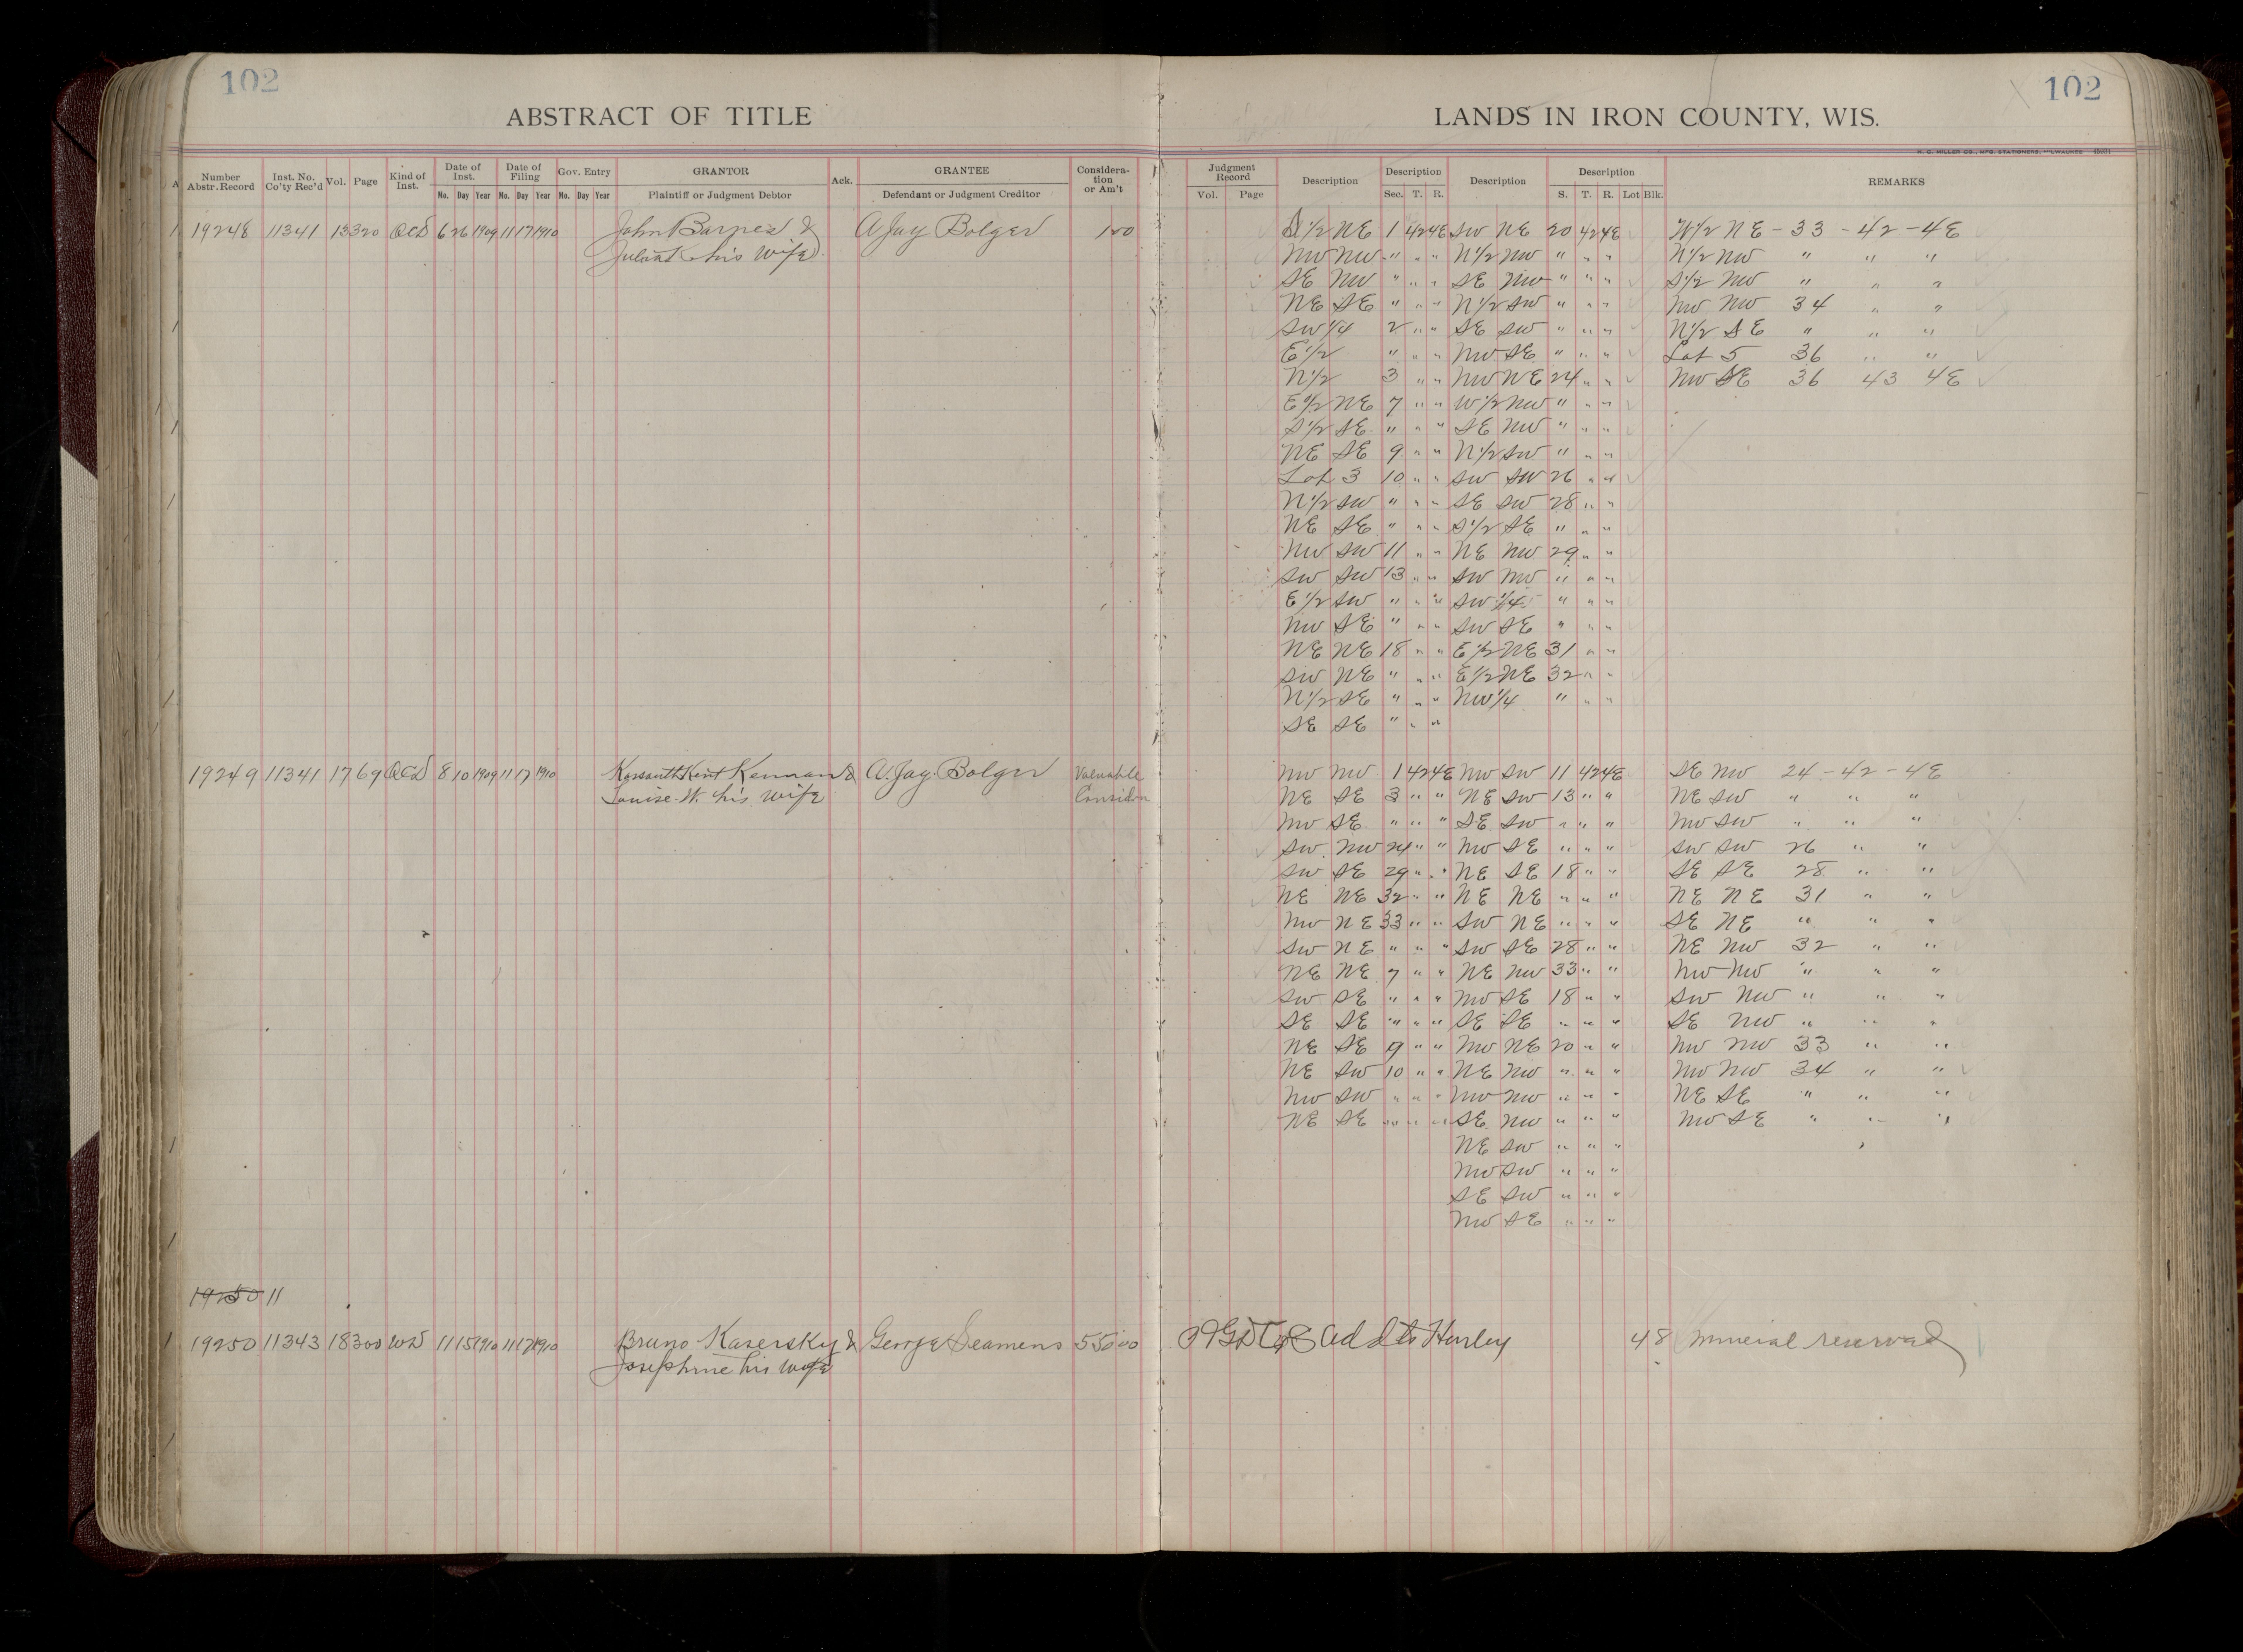 102
ABSTRACT OF TITLE
LANDS IN IRON COUNTY, WIS.
102
H. C. MILLER CO., MFG. STATIONERS, MILWAUKEE
Number Abstr. Record Inst. No. Co'ty Rec'd Vol. Page Kind of Inst. Date of Inst. Mo. Day Year Date of Filing Mo. Day Year Gov. Entry Mo. Day Year GRANTOR Plaintiff or Judgment Debtor Ack. GRANTEE Defendant or Judgment Creditor Consideration or Am't
Judgment Record Vol. Page Description Description Sec. T. R. Description Description S. T. R. Lot Blk. REMARKS
19248 11341 13 320 QCD 6 26 1909 11 17 1910 John Barnes & A Jay Bolger 1 00 S 1/2 NE 1 42 4E SW NE 20 42 4E W 1/2 NE - 33 - 42 - 4E
Julia K his wife NW NW " " " N 1/2 NW " " " N 1/2 NW " " "
SE NW " " " SE NW " " " S 1/2 NW " " "
NE SE " " " N 1/2 SW " " " NW NW 34 " "
SW 1/4 2 " " SE SW " " " N 1/2 SE " " "
E 1/2 " " " NW SE " " " Lot 5 36 " "
N 1/2 3 " " NW NE 24 " " NW SE 36 43 4E
E 1/2 NE 7 " " W 1/2 NW " " "
S 1/2 SE " " " SE NW " " "
NE SE 9 " " N 1/2 SW " " "
Lot 3 10 " " SW SW 26 " "
N 1/2 SW " " " SE SW 28 " "
NE SE " " " S 1/2 SE " " "
NW SW 11 " " NE NW 29 " "
SW SW 13 " " SW NW " " "
E 1/2 SW " " " SW 1/4 " " "
NW SE " " " SW SE " " "
NE NE 18 " " E 1/2 NE 31 " "
SW NE " " " E 1/2 NE 32 " "
N 1/2 SE " " " NW 1/4 " " "
SE SE " " "
19249 11341 17 69 QCD 8 10 1909 11 17 1910 Kossuth Kent Kennan & A. Jay Bolger Valuable NW NW 1 42 4E NW SW 11 42 4E SE NW 24 - 42 - 4E
Louise W. his wife Considn NE SE 3 " " NE SW 13 " " NE SW " " "
NW SE " " " SE SW " " " NW SW " " "
SW NW 24 " " NW SE " " " SW SW 26 " "
SW SE 29 " " NE SE 18 " " SE SE 28 " "
NE NE 32 " " NE NE " " " NE NE 31 " "
NW NE 33 " " SW NE " " " SE NE " " "
SW NE " " " SW SE 28 " " NE NW 32 " "
NE NE 7 " " NE NW 33 " " NW NW " " "
SW SE " " " NW SE 18 " " SW NW " " "
SE SE " " " SE SE " " " SE NW " " "
NE SE 9 " " NW NE 20 " " NW NW 33 " "
NE SW 10 " " NE NW " " " NW NW 34 " "
NW SW " " " NW NW " " " NE SE " " "
NE SE " " " SE NW " " " NW SE " " "
NE SW " " "
NW SW " " "
SE SW " " "
NW SE " " "
19250 11
19250 11343 18 300 WD 11 15 1910 11 17 1910 Bruno Kasersky & George Seamens 550 00 Add to Hurley 4 8 Mineral reserved
Josephine his wife